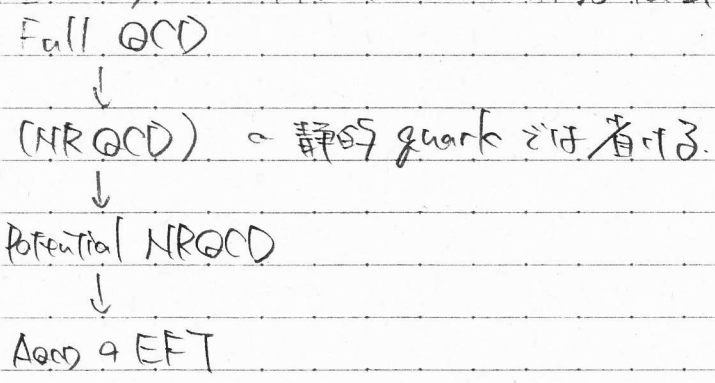 Full QCD
↓
(NRQCD) ← 静的 quark では省ける.
↓
Potential NRQCD
↓
ΛQCD の EFT